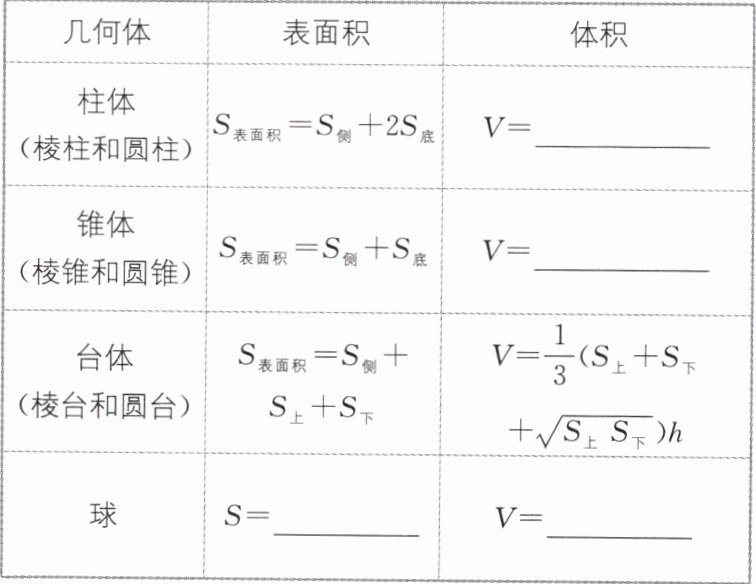 几何体 表面积 体积
柱体
(棱柱和圆柱)
S表面积=S侧+2S底
V=
锥体
(棱锥和圆锥)
S表面积=S侧+S底
V=
台体
(棱台和圆台)
S表面积=S侧+
S上+S下
V=1/3(S上+S下
+√(S上 S下))h
球
S=
V=